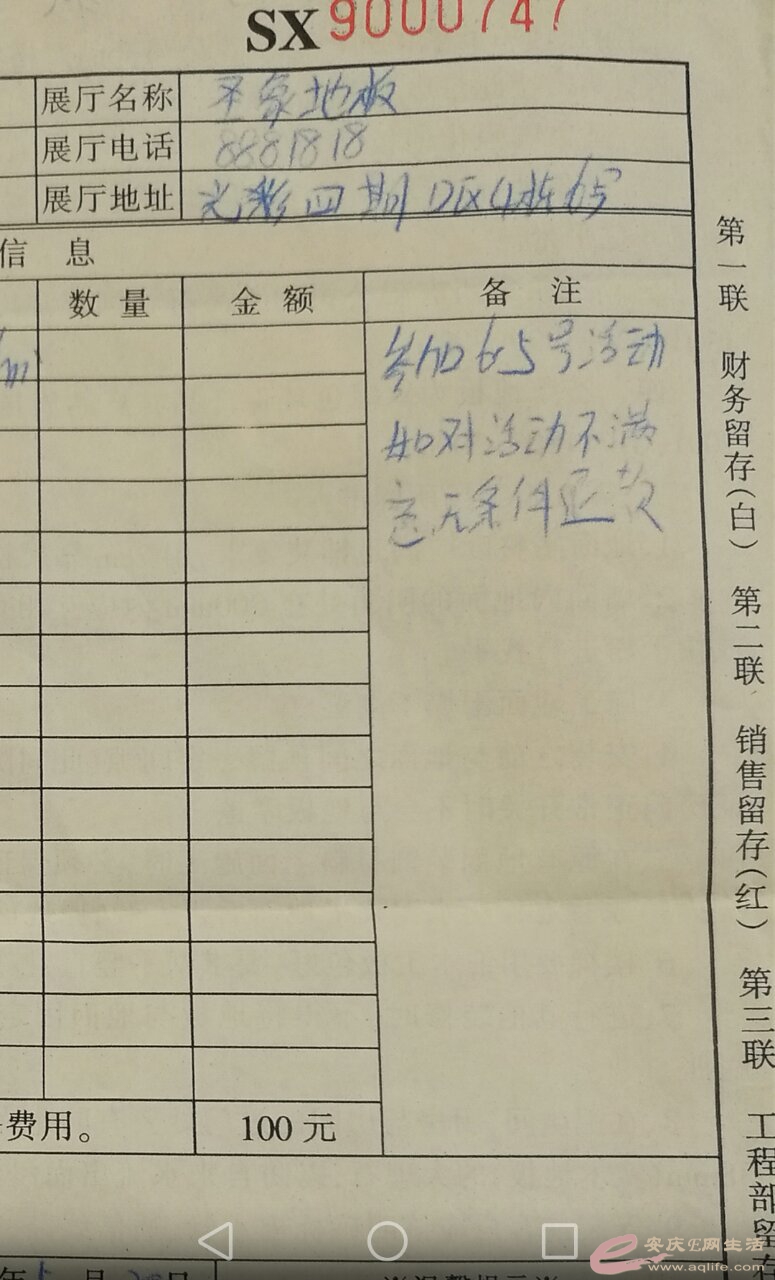 SX 9000747
展厅名称 圣象地板
展厅电话 8881818
展厅地址 光彩四期D区4栋6号
信 息
数 量 金 额 备 注
参加6.5号活动
如对活动不满
意无条件退款
费用。 100 元
年5月20日
第一联 财务留存(白) 第二联 销售留存(红) 第三联 工程部留存
安庆E网生活
www.aqlife.com